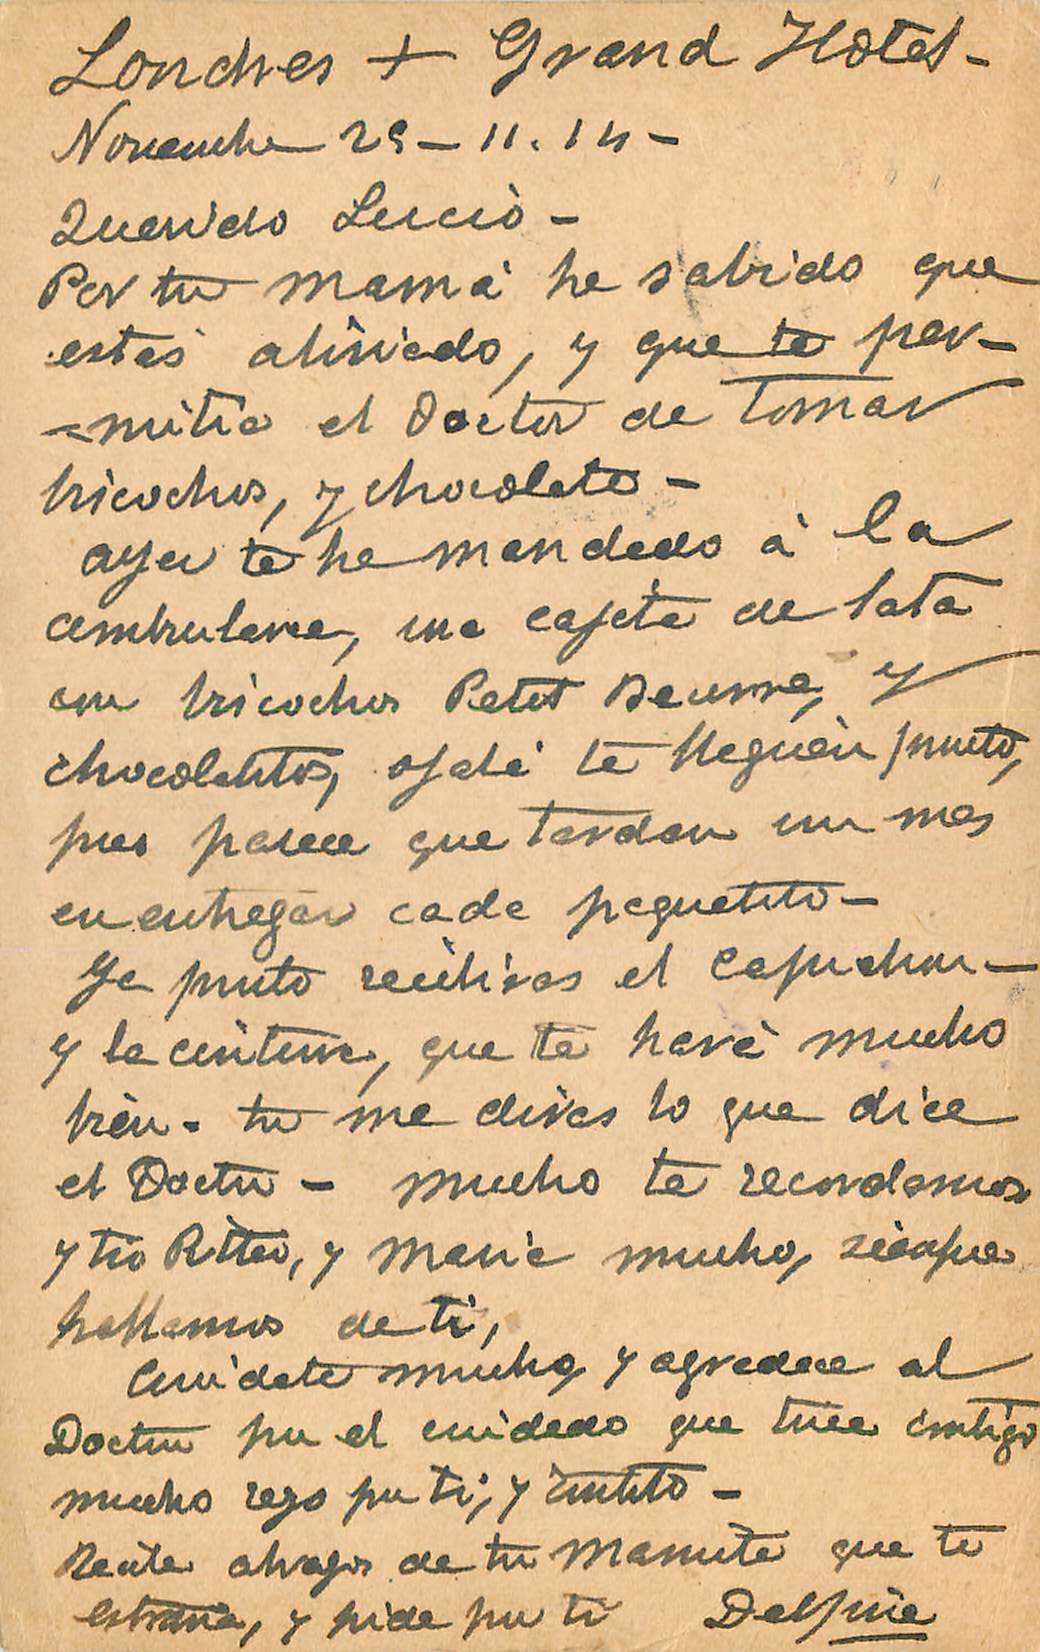 Londres + Grand Hotel -
Noviembre 29 - 11. 14 -
Querido Lucio -
Por tu mamá he sabido que
estás aliviado, y que te per-
-mitia el Doctor de tomar
bicochos, y chocolate -
ayer te he mandado à la
ambulance, una cajita de lata
con bicochos Petit Beurre, y
chocolatitos, ojalá te lleguèn pronto,
pues parece que tardan un mes
en entregar cada paquetito -
Ya pronto recibiras el Capuchon -
y la cintura, que te harà mucho
bien - tu me diras lo que dice
el Doctor - mucho te recordamos
y tio, y Maria mucho, siempre
hablamos de ti,
Cuidate mucho, y agradece al
Doctor por el cuidado que tiene contigo
mucho rezo por ti, y -
Recibe abrazos de tu Mamita que te
extraña, y pide por ti Delfina